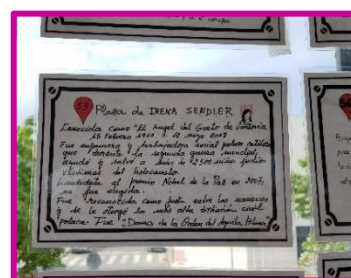 Plaza de IRENA SENDLER
Conocida como "El Angel del Gueto de Varsovia
15 Febrero 1910 a 12 mayo 2008
Fue enfermera y trabajadora social polaca católica
que durante la segunda guerra mundial
ayudó y salvó a más de 2500 niños judíos
víctimas del holocausto.
Candidata al premio Nobel de la Paz en 2007,
no fue elegida.
Fue reconocida como justa entre las naciones
y se le otorgó la más alta distinción civil
polaca: Fue "Dama de la Orden del Aguila Blanca"